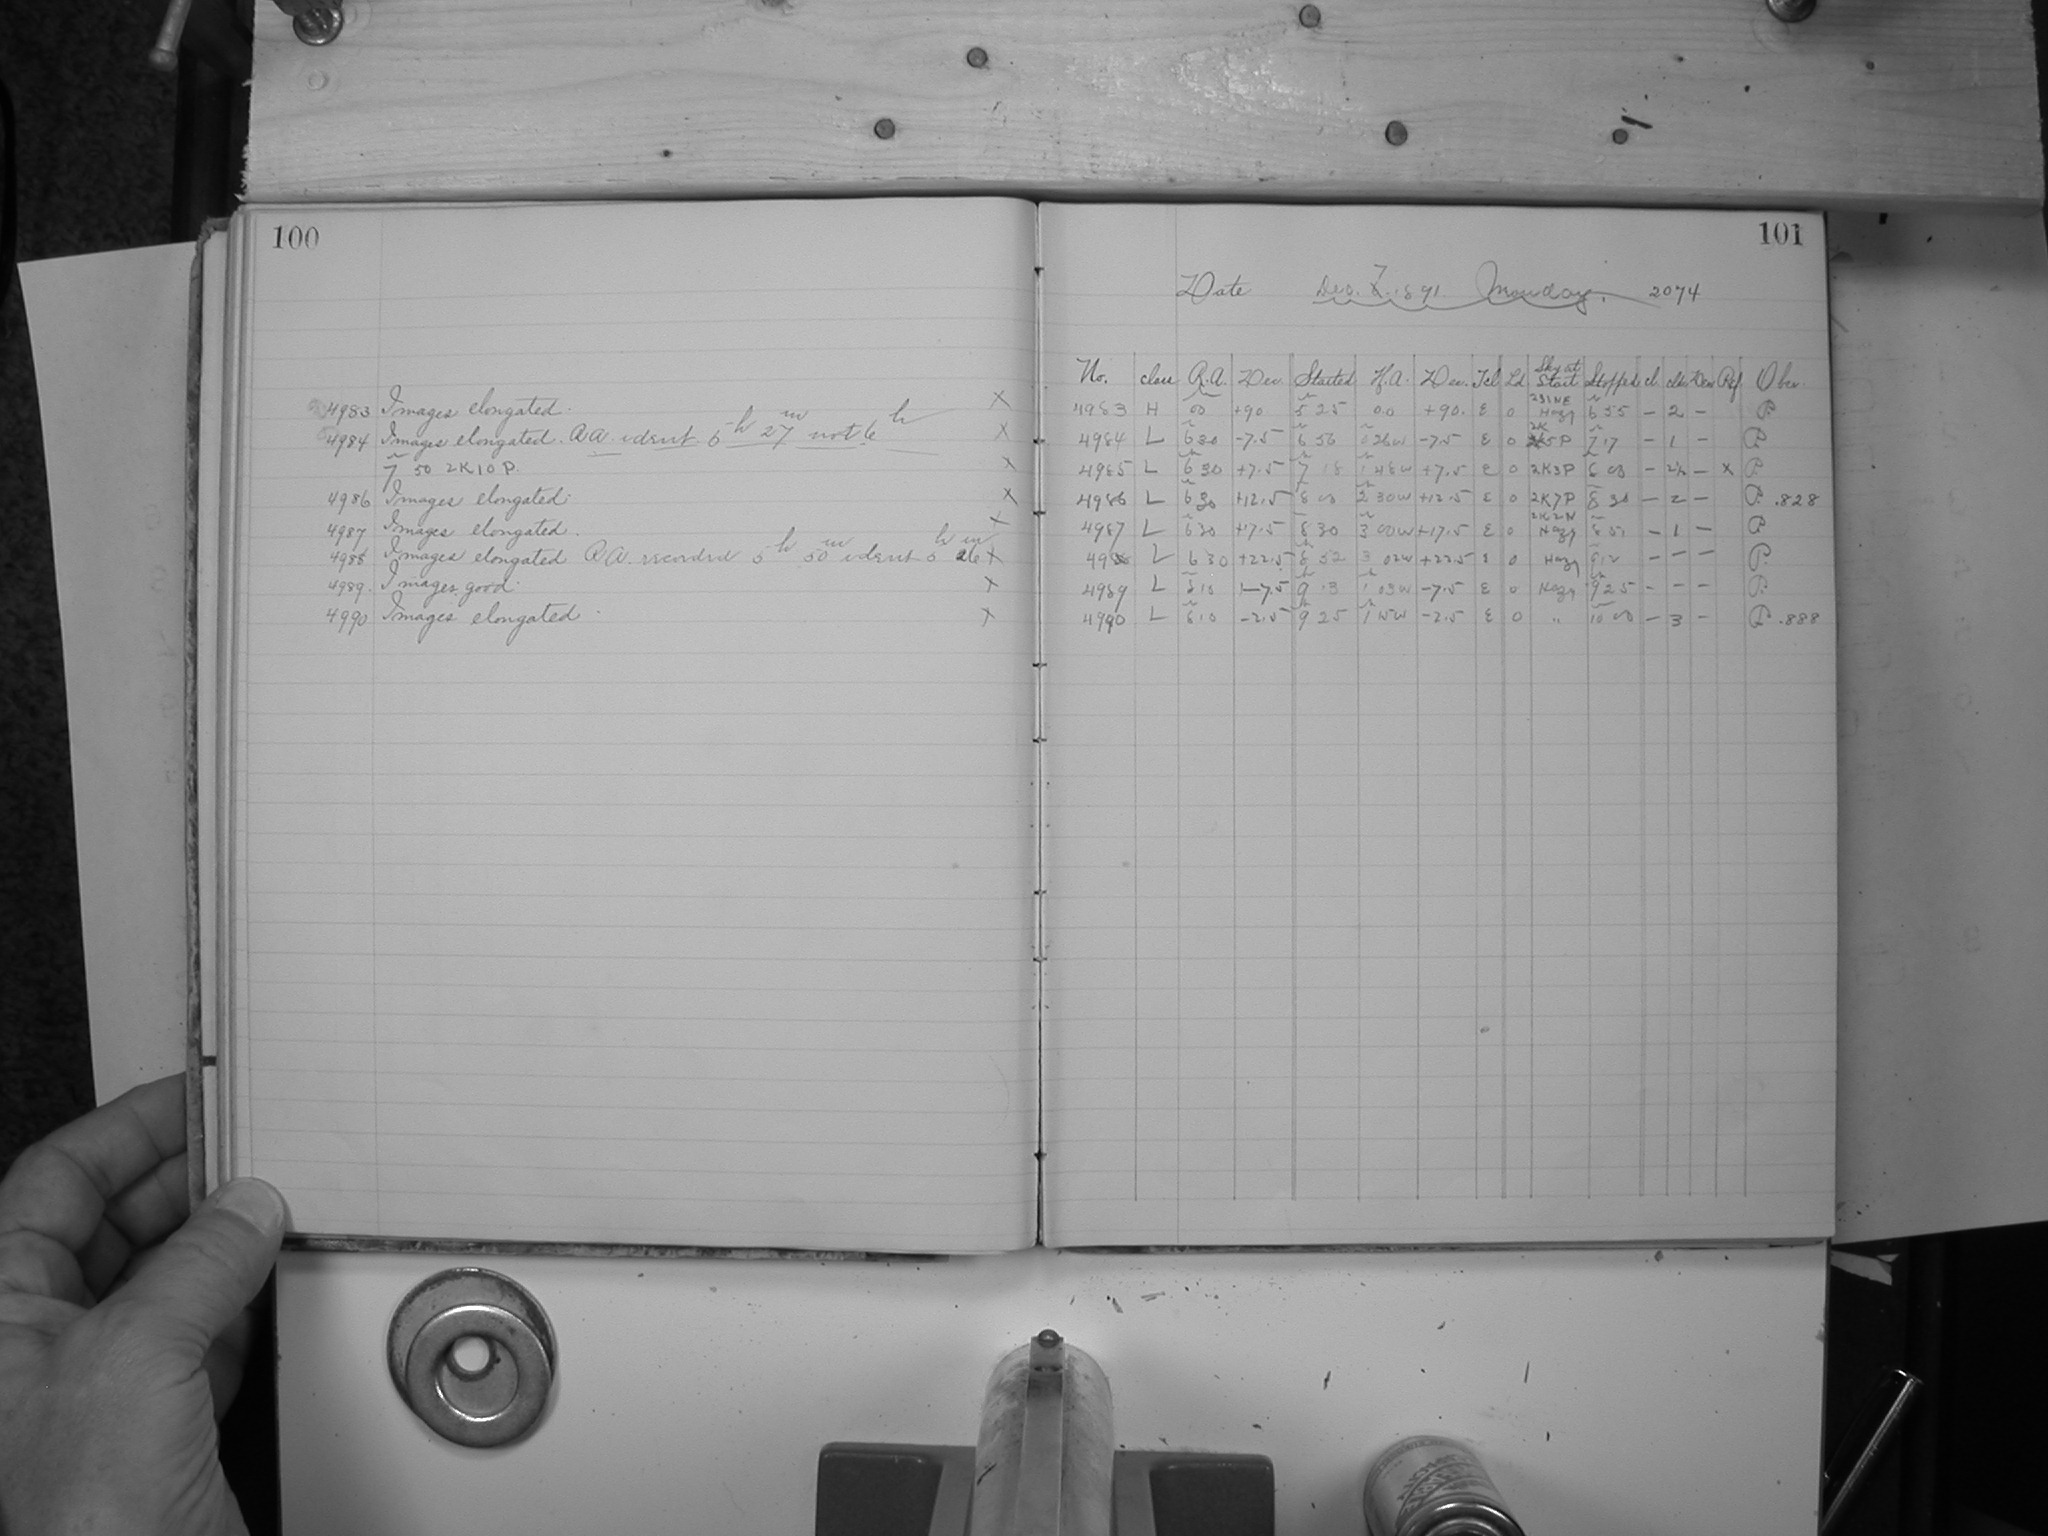 100
4983 Images elongated.
4984 Images elongated. R.A. ident 5h 27m not 6h
7 50 2K10P.
4986 Images elongated.
4987 Images elongated.
4988 Images elongated R.A. recorded 5h 50m ident 5h 26m
4989. Images good.
4990 Images elongated.
101
Date Dec. 7 1891 Monday. 2074
No. class R.A. Dec. Started H.A. Dec. Tel Ld Sky at Start Stopped cl Dev Ref Obser.
4983 H 00 +90 5 25 00 +90. E 0 Hazy 6 55 - 2 - P.
4984 L 5 30 -7.5 6 56 26W -7.5 E 0 2K5P 7 17 - 1 - P
4985 L 5 30 +7.5 7 18 1 48W +7.5 E 0 2K3P 8 00 - 2½ - X P
4986 L 5 30 +12.5 8 00 2 30W +12.5 E 0 2K7P 8 30 - 2 - P. .828
4987 L 5 30 +17.5 8 30 3 00W +17.5 E 0 2K2N Hazy 8 51 - 1 - P
4988 L 5 30 +22.5 8 52 3 02W +22.5 E 0 Hazy 9 12 - - - P.
4989 L 8 10 -7.5 9 13 1 03W -7.5 E 0 Hazy 9 25 - - - P.
4990 L 8 10 -2.5 9 25 1 15W -2.5 E 0 " 10 00 - 3 - P .888